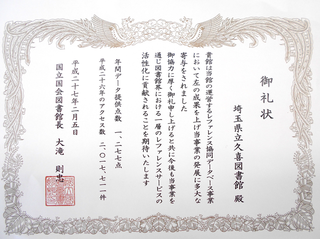 御礼状
埼玉県立久喜図書館 殿
貴館は当館の運営するレファレンス協同データベース事業
において左の成果を上げ当事業の発展に多大な
寄与をされました
御協力に厚く御礼申し上げると共に今後も当事業を
通じ図書館界における一層のレファレンスサービスの
活性化に貢献されることを期待いたします
年間データ提供点数 一、二七七点
平成二十六年のアクセス数 二、〇一七、七一一件
平成二十七年二月五日
国立国会図書館長 大滝 則忠